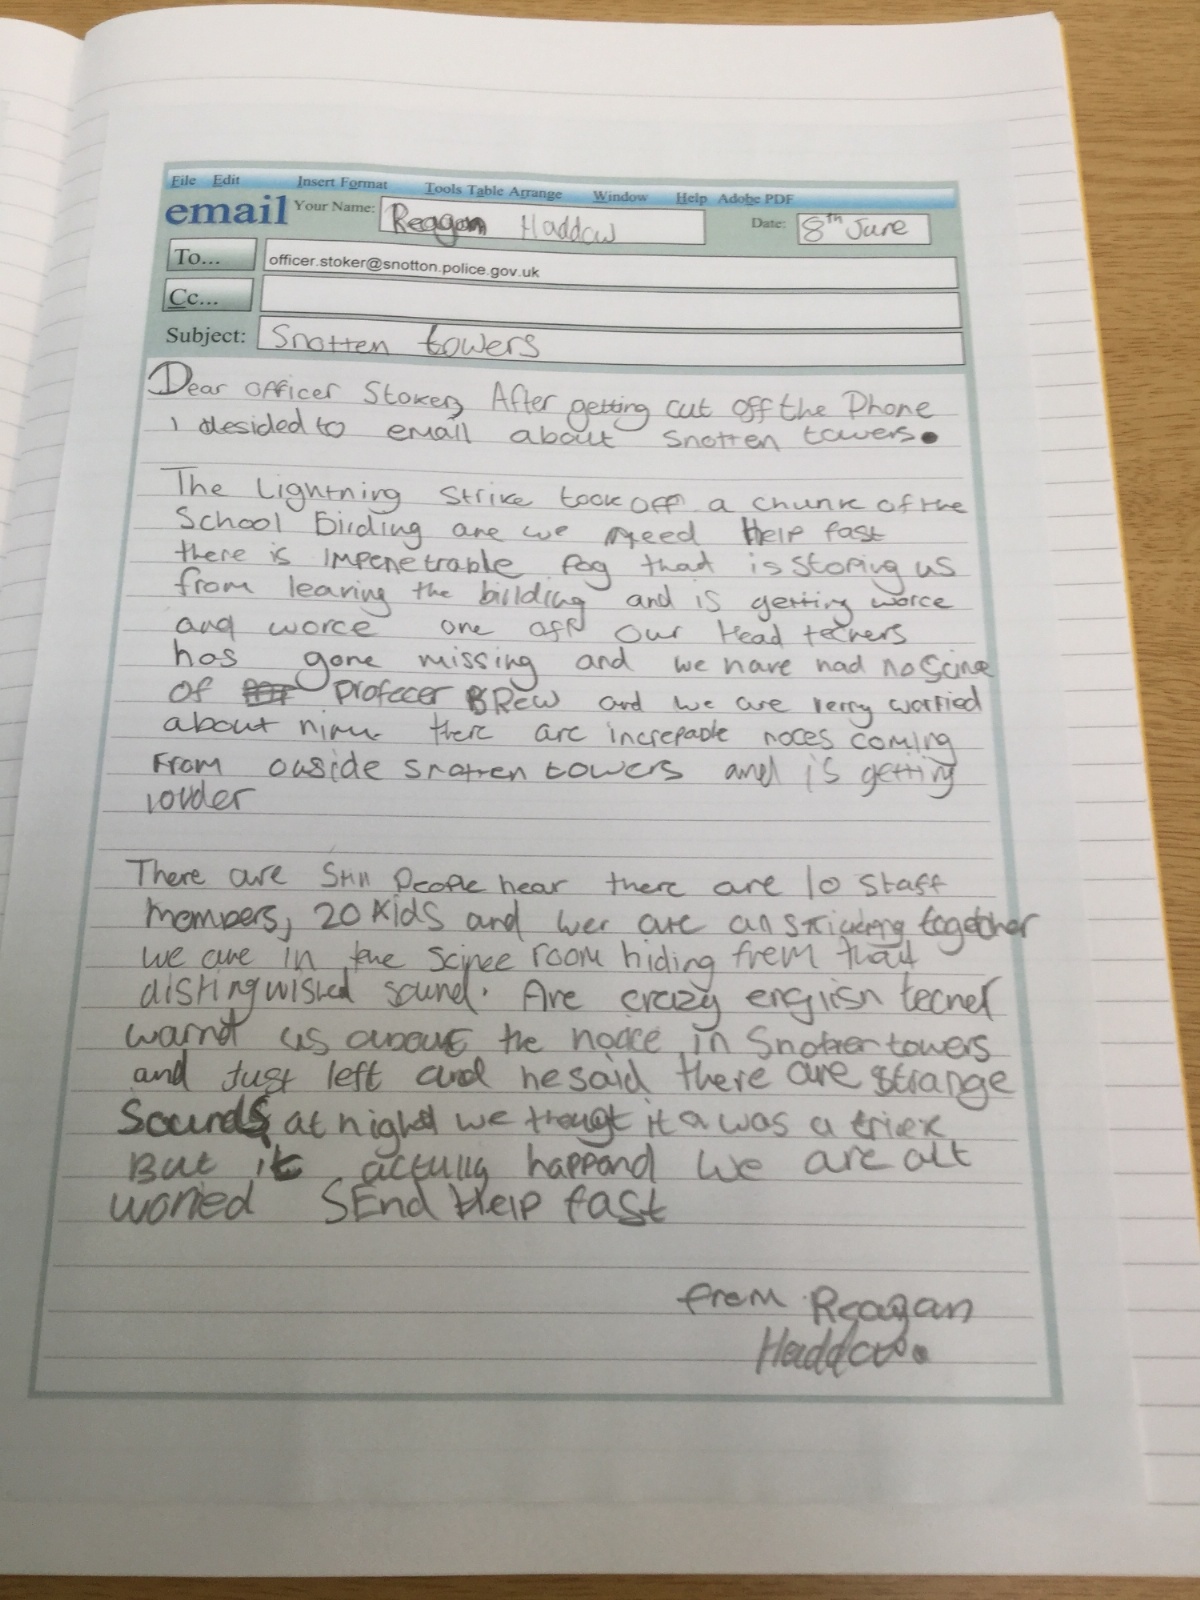 File Edit Insert Format Tools Table Arrange Window Help Adobe PDF
email Your Name: Reagan Haddow Date: 8th June
To... officer.stoker@snotton.police.gov.uk
Cc...
Subject: Snotten towers
Dear officer Stoker, After getting cut off the Phone
I desided to email about Snotten towers.
The Lightning Strike took off a chunk of the
School Birding are we need Help fast
there is impenetrable fog that is storing us
from leaving the billding and is getting worce
and worce one off our Head techers
has gone missing and we have had no Scine
of profecer BRew and we are verry worried
about him there are increpable noces coming
From ouside Snotten towers and is getting
louder
There are Still People hear there are 10 Staff
members, 20 Kids and wer are all sticking together
we are in the scince room hiding from that
distingwished sound. Are crazy english techer
warnd us about the noace in Snotten towers
and Just left and he said there are strange
Sounds at night we thougt it was a trick
But it actully happand we are all
worried SEnd Help fast
from Reagan
Haddow.